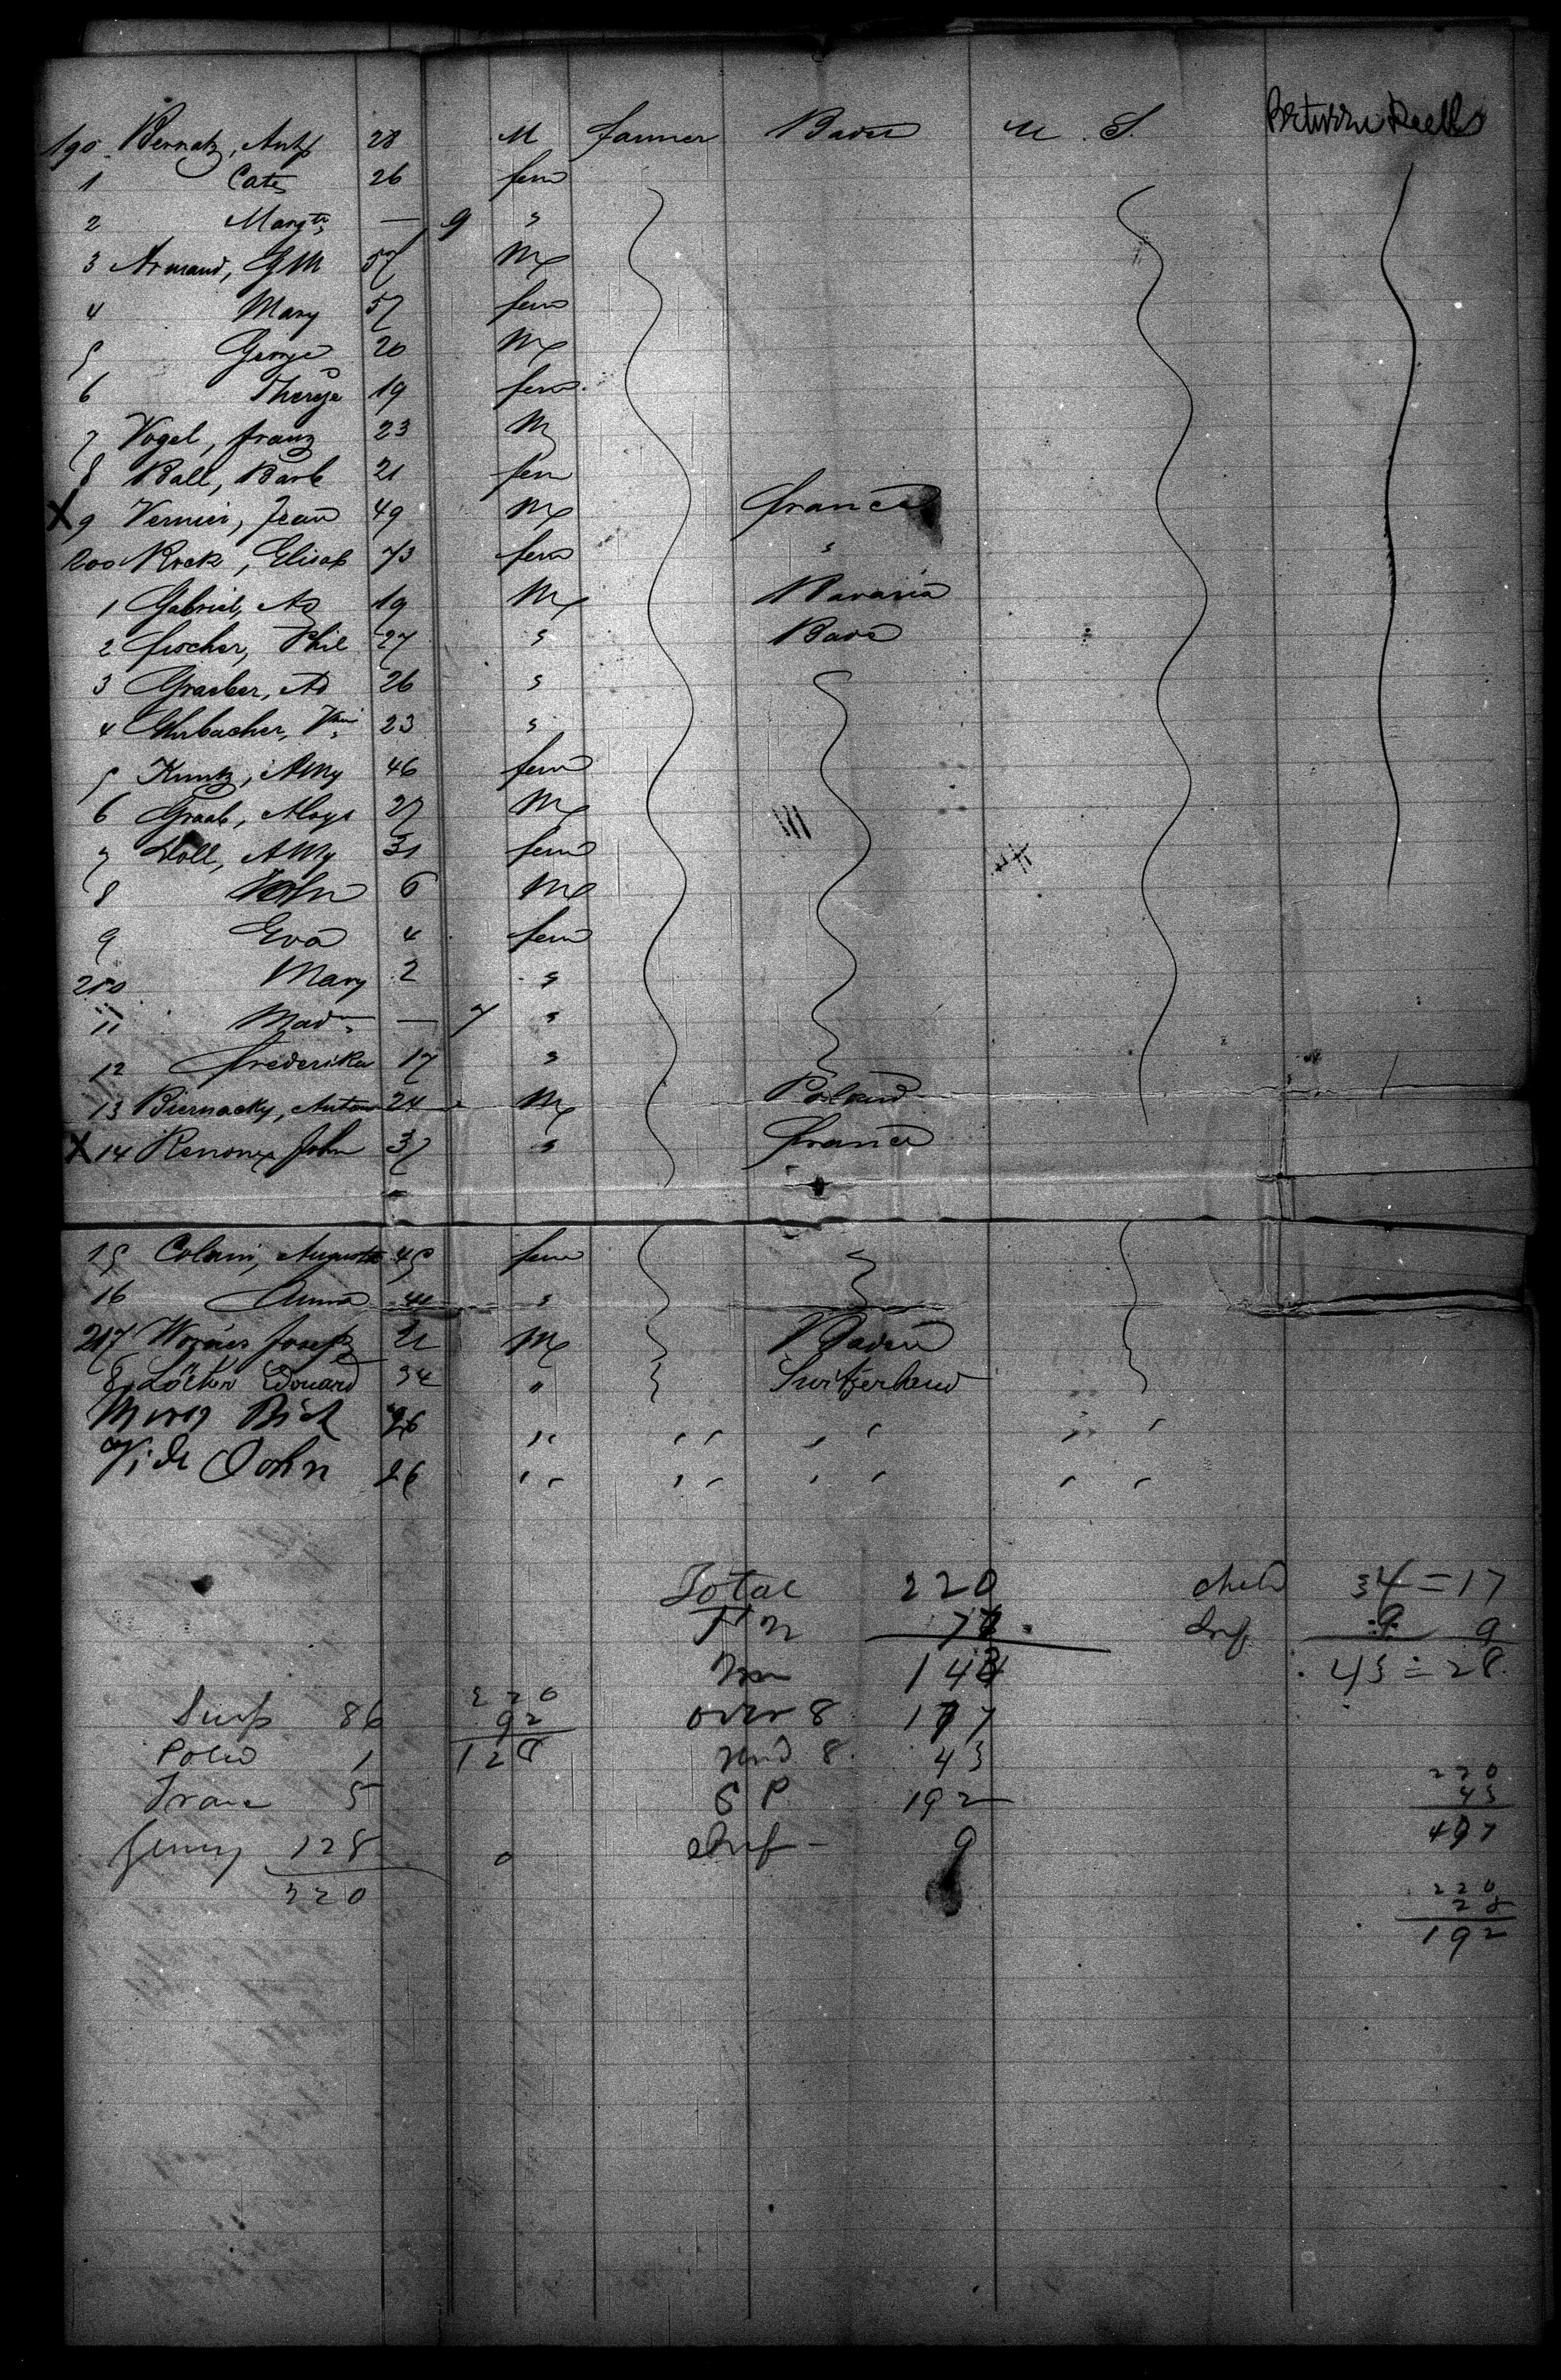 190 Bernatz, Anth 28 M farmer Baden U. S. Between Decks
1 Cath 26 fem
2 Margth — 9 "
3 Armand, G M 57 M
4 Mary 57 fem
5 George 20 M
6 Therese 19 fem
7 Vogel, franz 23 M
8 Ball, Barb 21 fem
X 9 Vernier, Jean 49 M france
200 Rock, Elisab 73 fem "
1 Gabriel, Ad 19 M Bavaria
2 fischer, Phil 27 " Baden
3 Graeber, Ad 26 "
4 23 "
5 Kuntz, AMy 46 fem
6 Graab, Aloys 27 M
7 Doll, AMy 31 fem
8 John 6 M
9 Eva 4 fem
210 Mary 2 "
11 Mad — 7 "
12 frederika 17 "
13 Biernacky, Anton 24 M Poland
X 14 John 37 " france
15 Colani, Augusta 45 fem
16 Anna "
217 Joseph 21 M Baden
8 Edouard 34 " Switzerland
26 " " " "
John 26 " " " "
Total 220 child 34 = 17
77 Inf 9 9
143 43 = 28
Swit 86 220 over 8 177
92
Poland 1 128 und 8 43
220
Franc 5 S P 192 43
Germy 128 0 Inf — 9 177
220 220
28
192